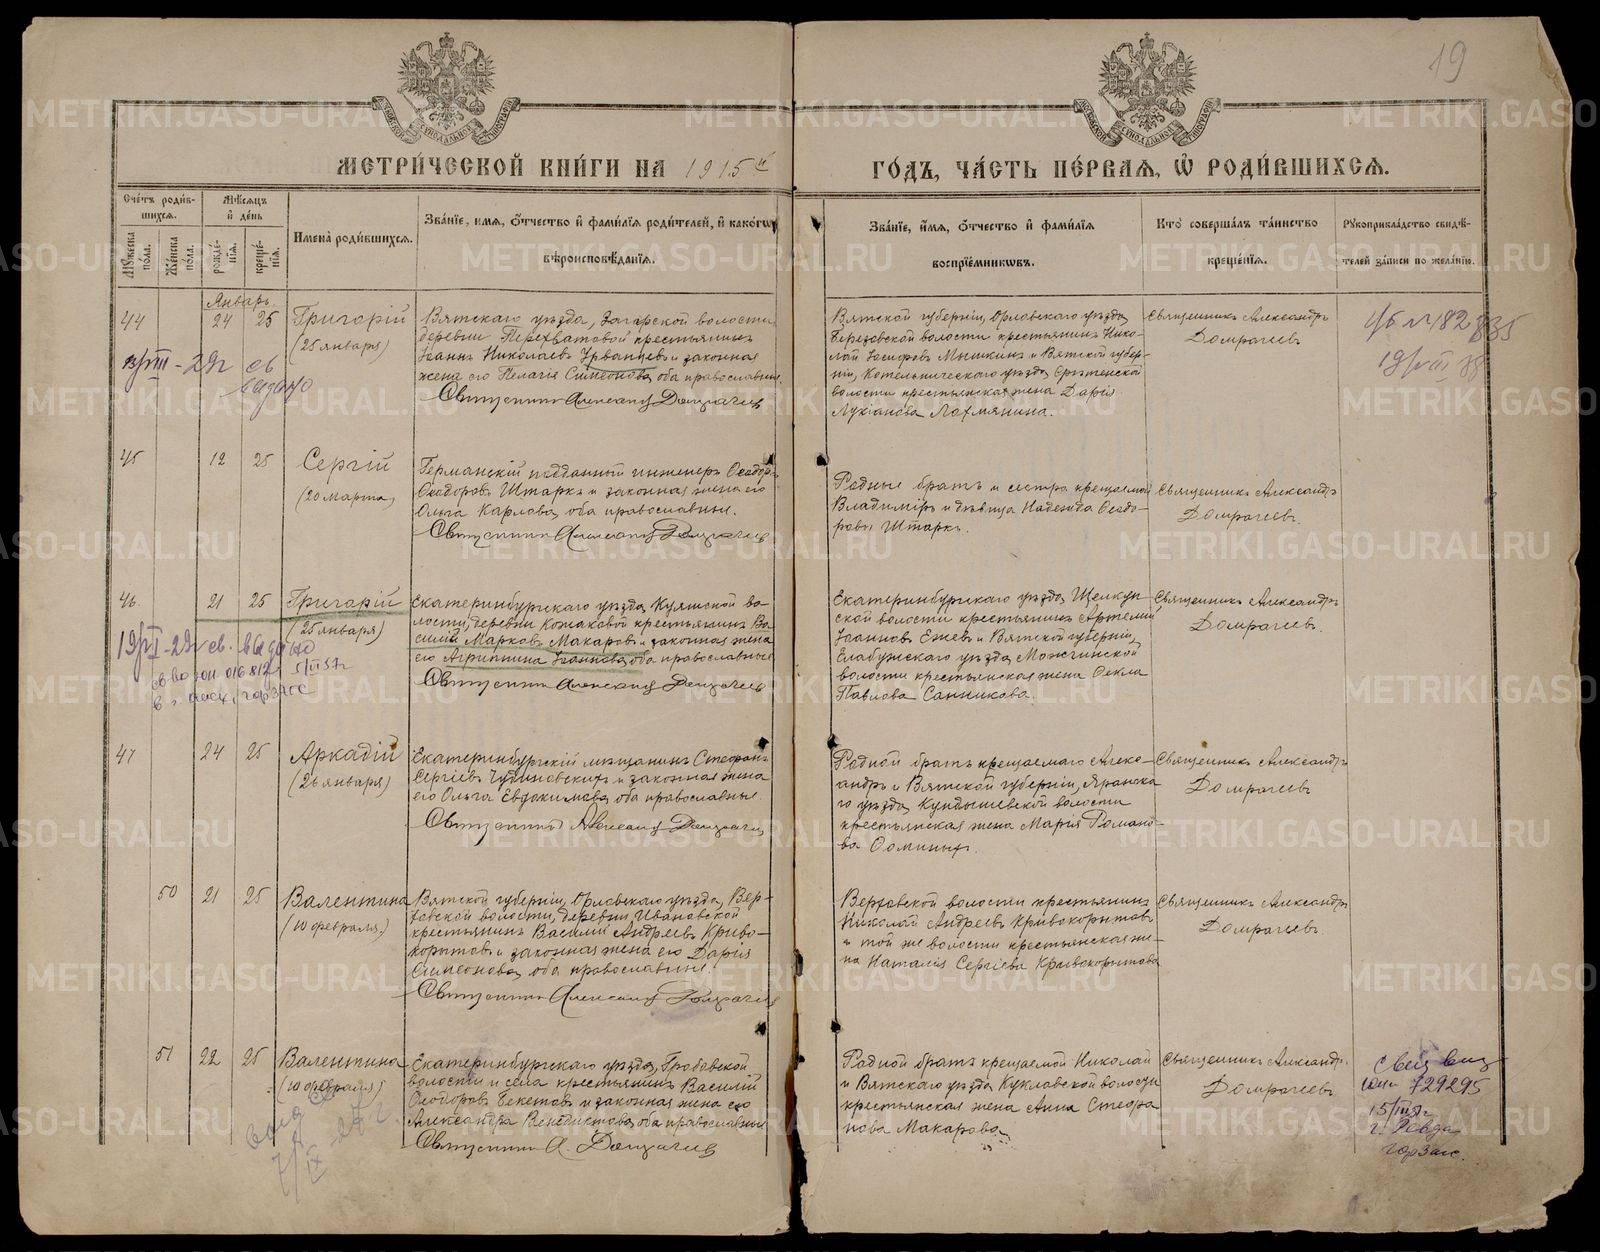 19
МЕТРИ́ЧЕСКОЙ КНИ́ГИ НА 1915й ГО́ДЪ, ЧА́СТЬ ПЕ́РВАЯ, Ѡ҆ РОДИ́ВШИХСЯ.
Сче́тъ роди́в-
шихся.
Мужеска по́ла.
Же́нска по́ла.
Мѣсяцъ
и де́нь
рожде́-
нія.
креще́-
нія.
Имена̀ роди́вшихся.
Зва́ніе, и́мя, о́тчество и фами́лія роди́телей, и како́гѡ
вѣроисповѣ́данія.
Зва́ніе, и́мя, о́тчество и фами́лія
воспріе́мниковъ.
Кто̀ соверша́лъ та́инство
креще́нія.
Рукоприкла́дство свидѣ́-
телей за́писи по жела́нію.
Январь
44
24
25
Григорій
(25 января)
Вятскаго уѣзда, Загарской волости,
деревни Перехватовой крестьянинъ
Іоаннъ Николаевъ Урванцевъ и законная
жена его Пелагія Симеонова, оба православные.
Священникъ Александръ Домрачевъ
Вятской губерніи, Орловскаго уѣзда,
Березовской волости крестьянинъ Нико-
лай Іосифовъ Мышкинъ и Вятской губер-
ніи, Котельническаго уѣзда, Срѣтенской
волости крестьянская жена Дарія
Лукіанова Лохмянина.
Священникъ Александръ
Домрачевъ
св
выдано
45
12
25
Сергій
(20 марта)
Германскій подданный инженеръ Ѳеодоръ
Ѳеодоровъ Штаркъ и законная жена его
Ольга Карлова, оба православные.
Священникъ Александръ Домрачевъ
Родные братъ и сестра крещаемаго
Владиміръ и дѣвица Надежда Ѳеодо-
ровы Штаркъ.
Священникъ Александръ
Домрачевъ.
46.
21
25
Григорій
(25 января)
Екатеринбургскаго уѣзда, Куяшской во-
лости, деревни Кошаковой крестьянинъ Ва-
силій Марковъ Макаровъ и законная жена
его Агриппина Іоаннова, оба православные.
Священникъ Александръ Домрачевъ
Екатеринбургскаго уѣзда, Щелкун-
ской волости крестьянинъ Артемій
Іоанновъ Ежевъ и Вятской губерніи,
Елабужскаго уѣзда, Можгинской
волости крестьянская жена Ѳекла
Павлова Санникова.
Священникъ Александръ
Домрачевъ.
св. выдано
горЗАГС
47
24
25
Аркадій
(26 января)
Екатеринбургскій мѣщанинъ Стефанъ
Сергіевъ Чудиновскихъ и законная жена
его Ольга Евдокимова, оба православные.
Священникъ Александръ Домрачевъ
Родной братъ крещаемаго Алекс-
андръ и Вятской губерніи, Яранска-
го уѣзда, Кундышевской волости
крестьянская жена Марія Романо-
ва Ѳоминыхъ.
Священникъ Александръ
Домрачевъ
50
21
25
Валентина
(10 февраля)
Вятской губерніи, Орловскаго уѣзда, Вер-
ховской волости, деревни Ивановской
крестьянинъ Василій Андреевъ Криво-
корытовъ и законная жена его Дарія
Симеонова, оба православные.
Священникъ Александръ Домрачевъ
Верховской волости крестьянинъ
Николай Андреевъ Кривокорытовъ
и той же волости крестьянская же-
на Наталія Сергіева Кривокорытова
Священникъ Александръ
Домрачевъ.
51
22
25
Валентина
(10 февраля)
Екатеринбургскаго уѣзда, Гробовской
волости и села крестьянинъ Василій
Ѳеодоровъ Бекетовъ и законная жена его
Александра Венедиктова, оба православные
Священникъ А. Домрачевъ
Родной братъ крещаемой Николай
и Вятскаго уѣзда, Кукловской волости
крестьянская жена Анна Стефа-
нова Макарова
Священникъ Александръ
Домрачевъ
729295
г. Ревда
горЗагс.
METRIKI.GASO-URAL.RU